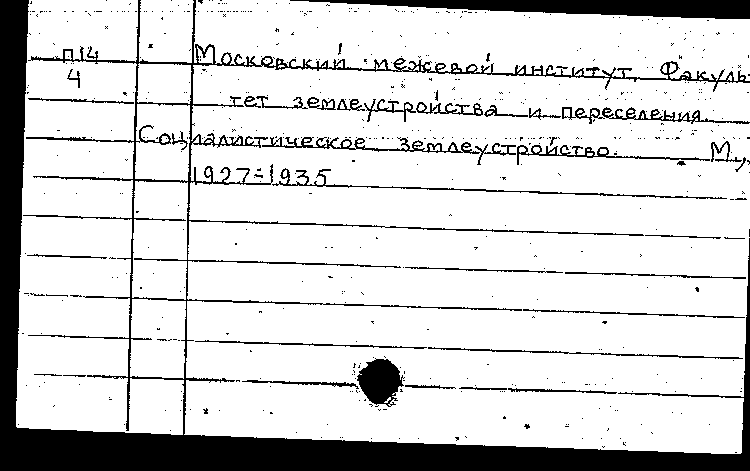 П14
4
Московский межевой институт. Факуль-
тет землеустройства и переселения.
Социалистическое землеустройство. М.,
1927-1935